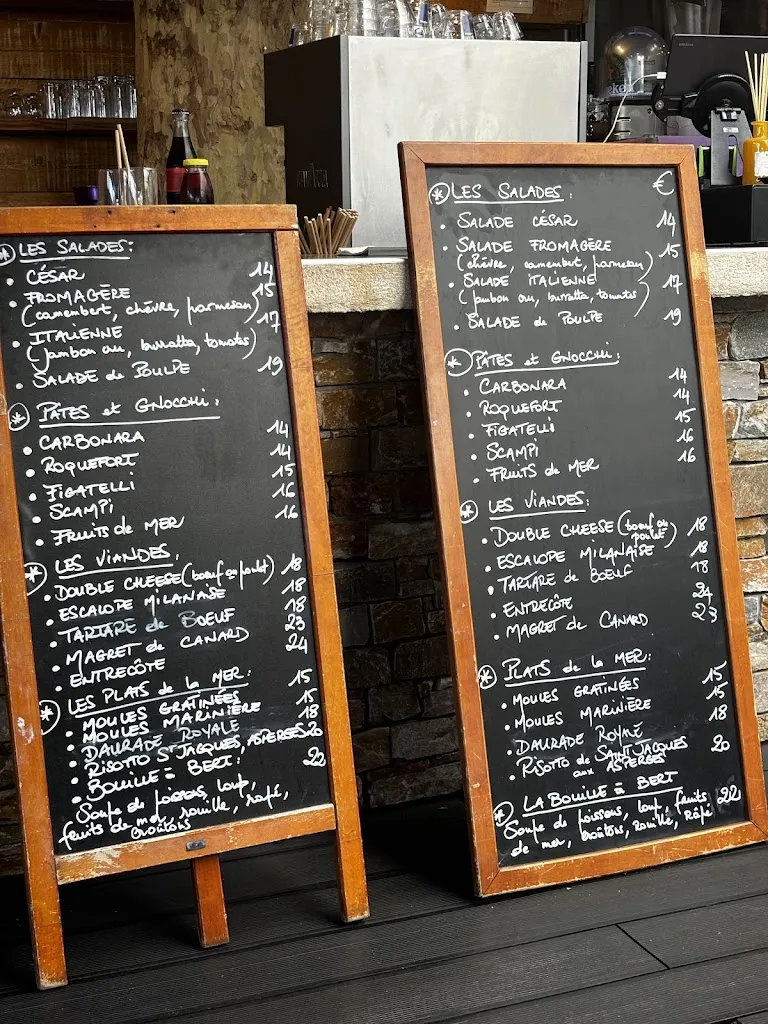 * LES SALADES:
• CÉSAR 14
• FROMAGÈRE 15
(camembert, chèvre, parmesan)
• ITALIENNE 17
(jambon cru, burratta, tomates)
• SALADE de POULPE 19
* PÂTES et GNOCCHI:
• CARBONARA 14
• ROQUEFORT 14
• FIGATELLI 15
• SCAMPI 16
• FRUITS de MER 16
* LES VIANDES:
• DOUBLE CHEESE (boeuf ou poulet) 18
• ESCALOPE MILANAISE 18
• TARTARE de BOEUF 18
• MAGRET de CANARD 23
• ENTRECÔTE 24
* LES PLATS de la MER:
• MOULES GRATINÉES 15
• MOULES MARINIÈRE 15
• DAURADE ROYALE 18
• RISOTTO ST JACQUES, ASPERGES 20
• BOUILLE à BERT: 22
Soupe de poissons, loup,
fruits de mer, rouille, rapé,
croûtons
* LES SALADES: €
• SALADE CÉSAR 14
• SALADE FROMAGÈRE 15
(chèvre, camembert, parmesan)
• SALADE ITALIENNE 17
(jambon cru, burratta, tomates)
• SALADE de POULPE 19
* PÂTES et GNOCCHI:
• CARBONARA 14
• ROQUEFORT 14
• FIGATELLI 15
• SCAMPI 16
• FRUITS de MER 16
* LES VIANDES:
• DOUBLE CHEESE (boeuf ou poulet) 18
• ESCALOPE MILANAISE 18
• TARTARE de BOEUF 18
• ENTRECÔTE 24
• MAGRET de CANARD 23
* PLATS de la MER:
• MOULES GRATINÉES 15
• MOULES MARINIÈRE 15
• DAURADE ROYALE 18
• RISOTO de SAINT JACQUES 20
aux ASPERGES
* LA BOUILLE à BERT
Soupe de poissons, loup, fruits 22
de mer, croûtons, Rouille, Râpé